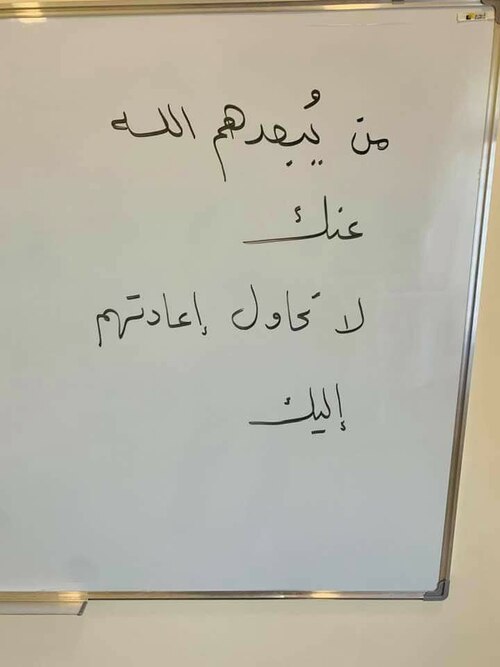 من يُبعدهم الله
عنك
لا تحاول إعادتهم
إليك